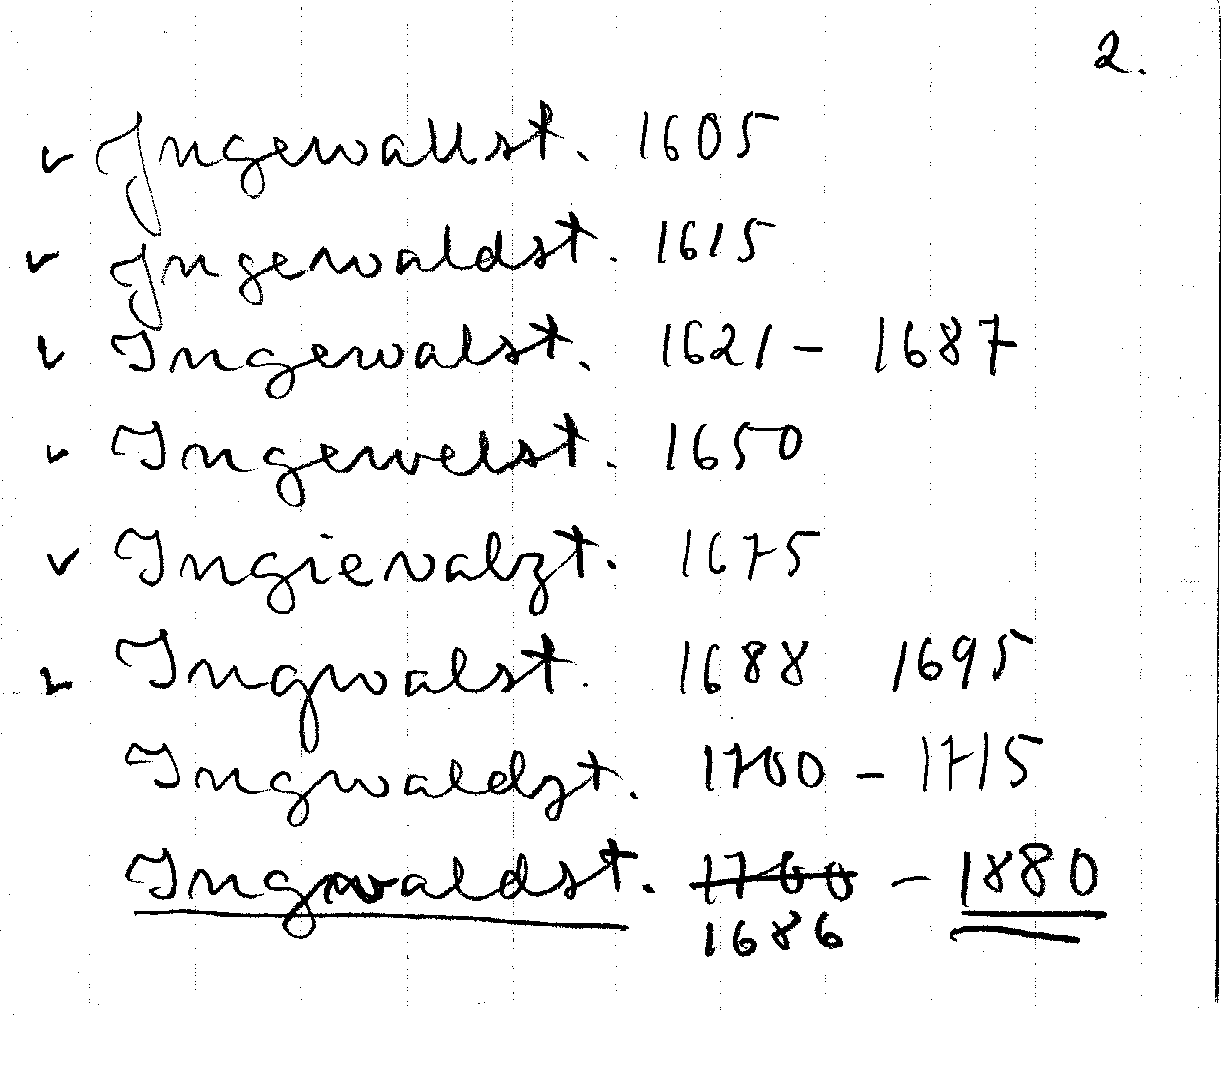 2.
v Jngewallst. 1605
v Jngewaldst. 1615
v Ingewalst. 1621 - 1687
v Ingewelst. 1650
v Ingievalzt. 1675
v Ingwalst. 1688 1695
Ingwaldzt. 1700 - 1715
Ingwaldst. 1700 - 1880
1686